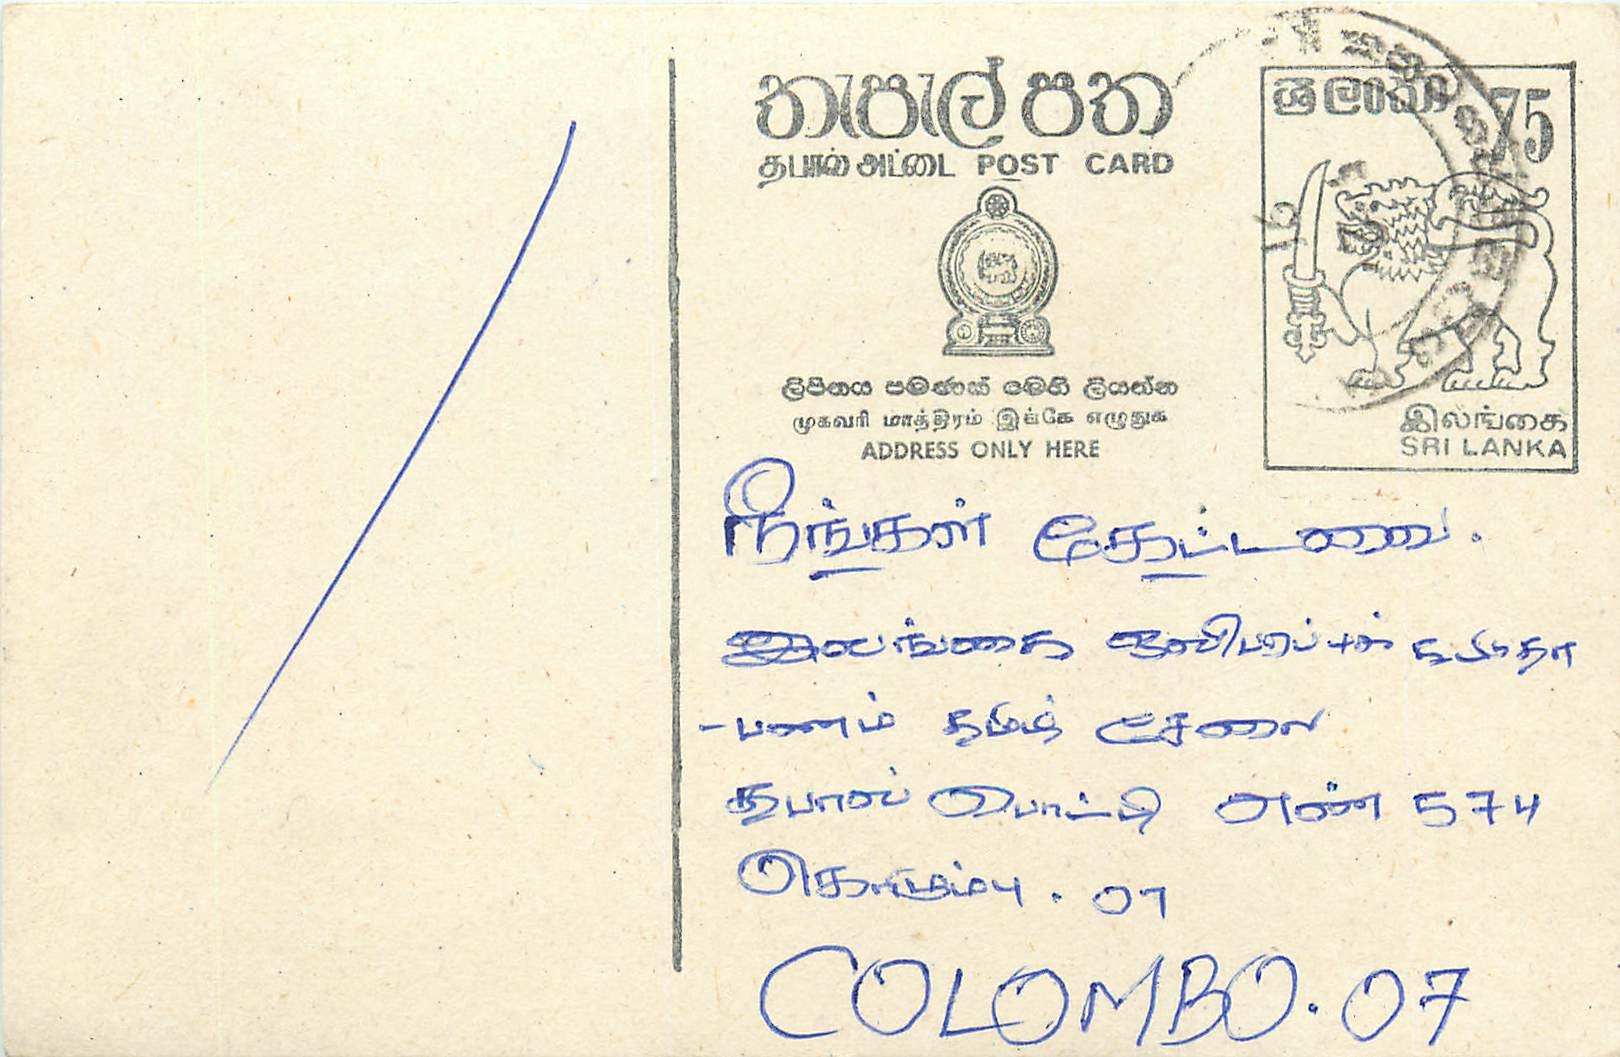 තැපැල් පත
தபால் அட்டை POST CARD
ශ්‍රී ලංකා 75
ලිපිනය පමණක් මෙහි ලියන්න
முகவரி மாத்திரம் இங்கே எழுதுக
ADDRESS ONLY HERE
இலங்கை
SRI LANKA
நீங்கள் கேட்டவை.
இலங்கை ஒலிபரப்புக் கூட்டுதா
-பனம் தமிழ் சேவை
தபால் பெட்டி எண் 574
கொழும்பு. 07
COLOMBO. 07